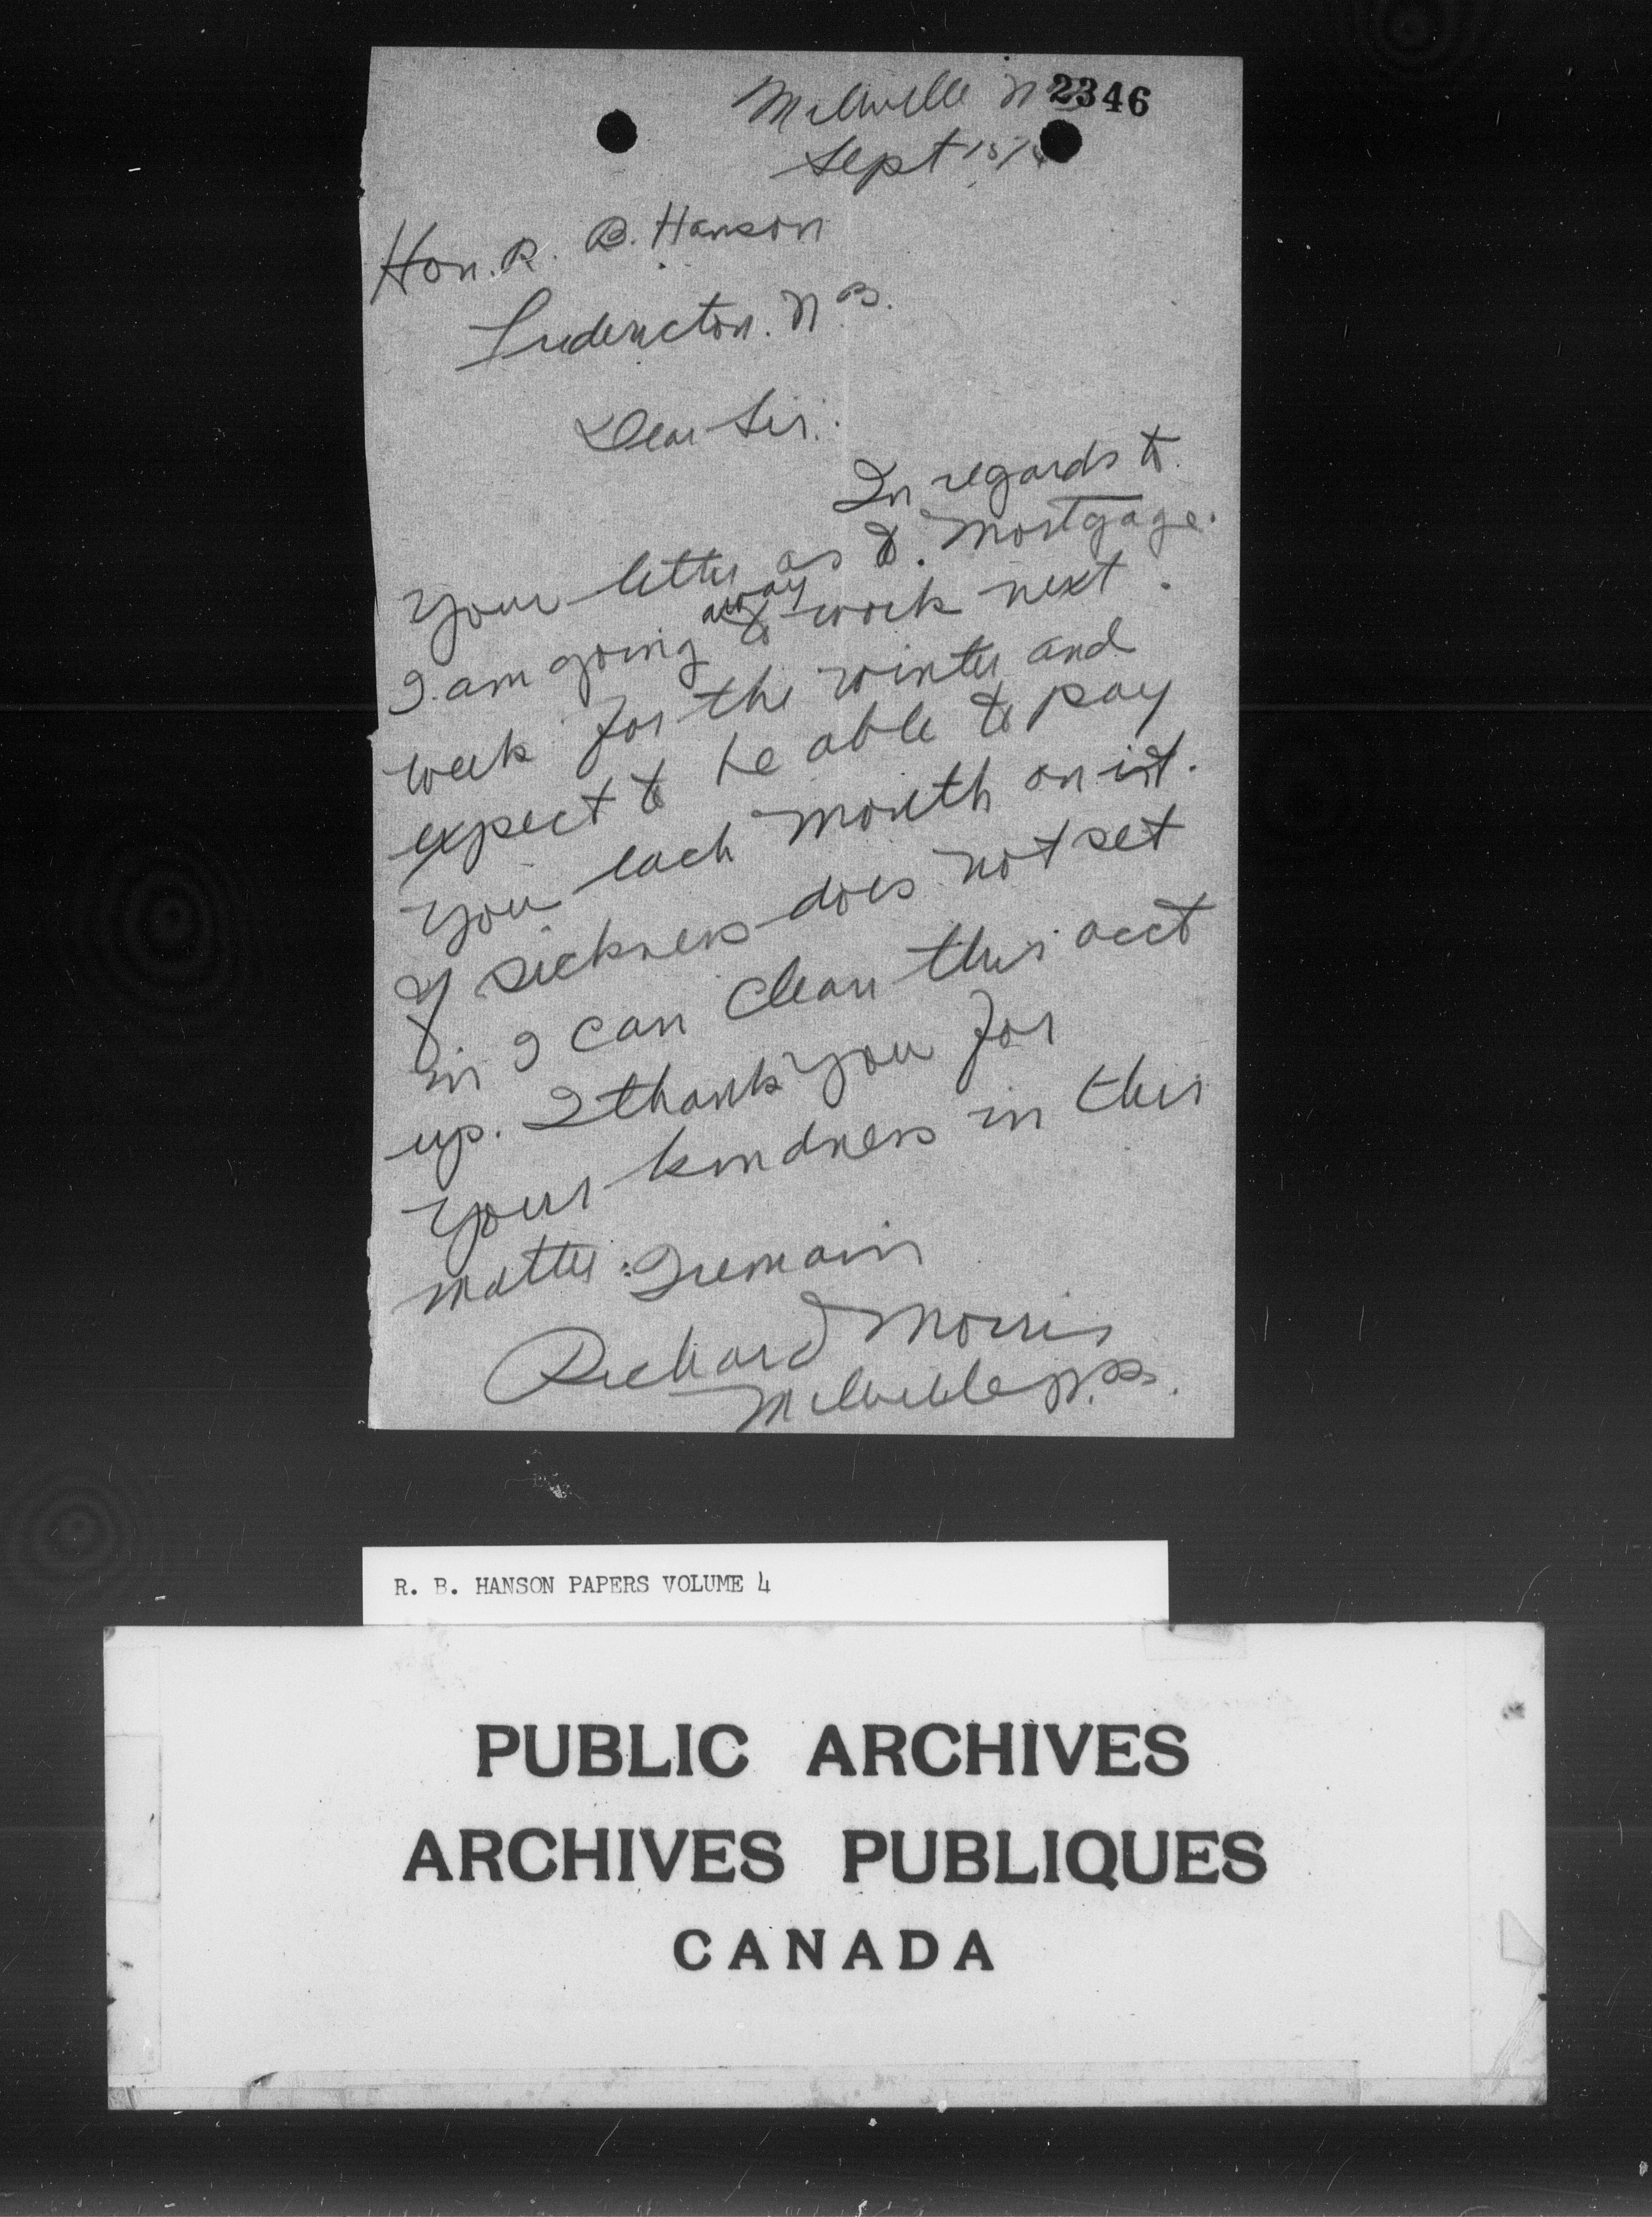 Millville N
2346
Sept 15/
Hon. R. B. Hanson
Fredericton. N.B.
Dear Sir:
In regards to
your letter as to Mortgage.
I am going away to work next
week for the winter and
expect to be able to pay
you each month on int.
If sickness does not set
in I can clean this acct
up. I thank you for
your kindness in this
matter. I remain
Richard Morris
Millville N.B.
R. B. HANSON PAPERS VOLUME 4
PUBLIC ARCHIVES
ARCHIVES PUBLIQUES
CANADA